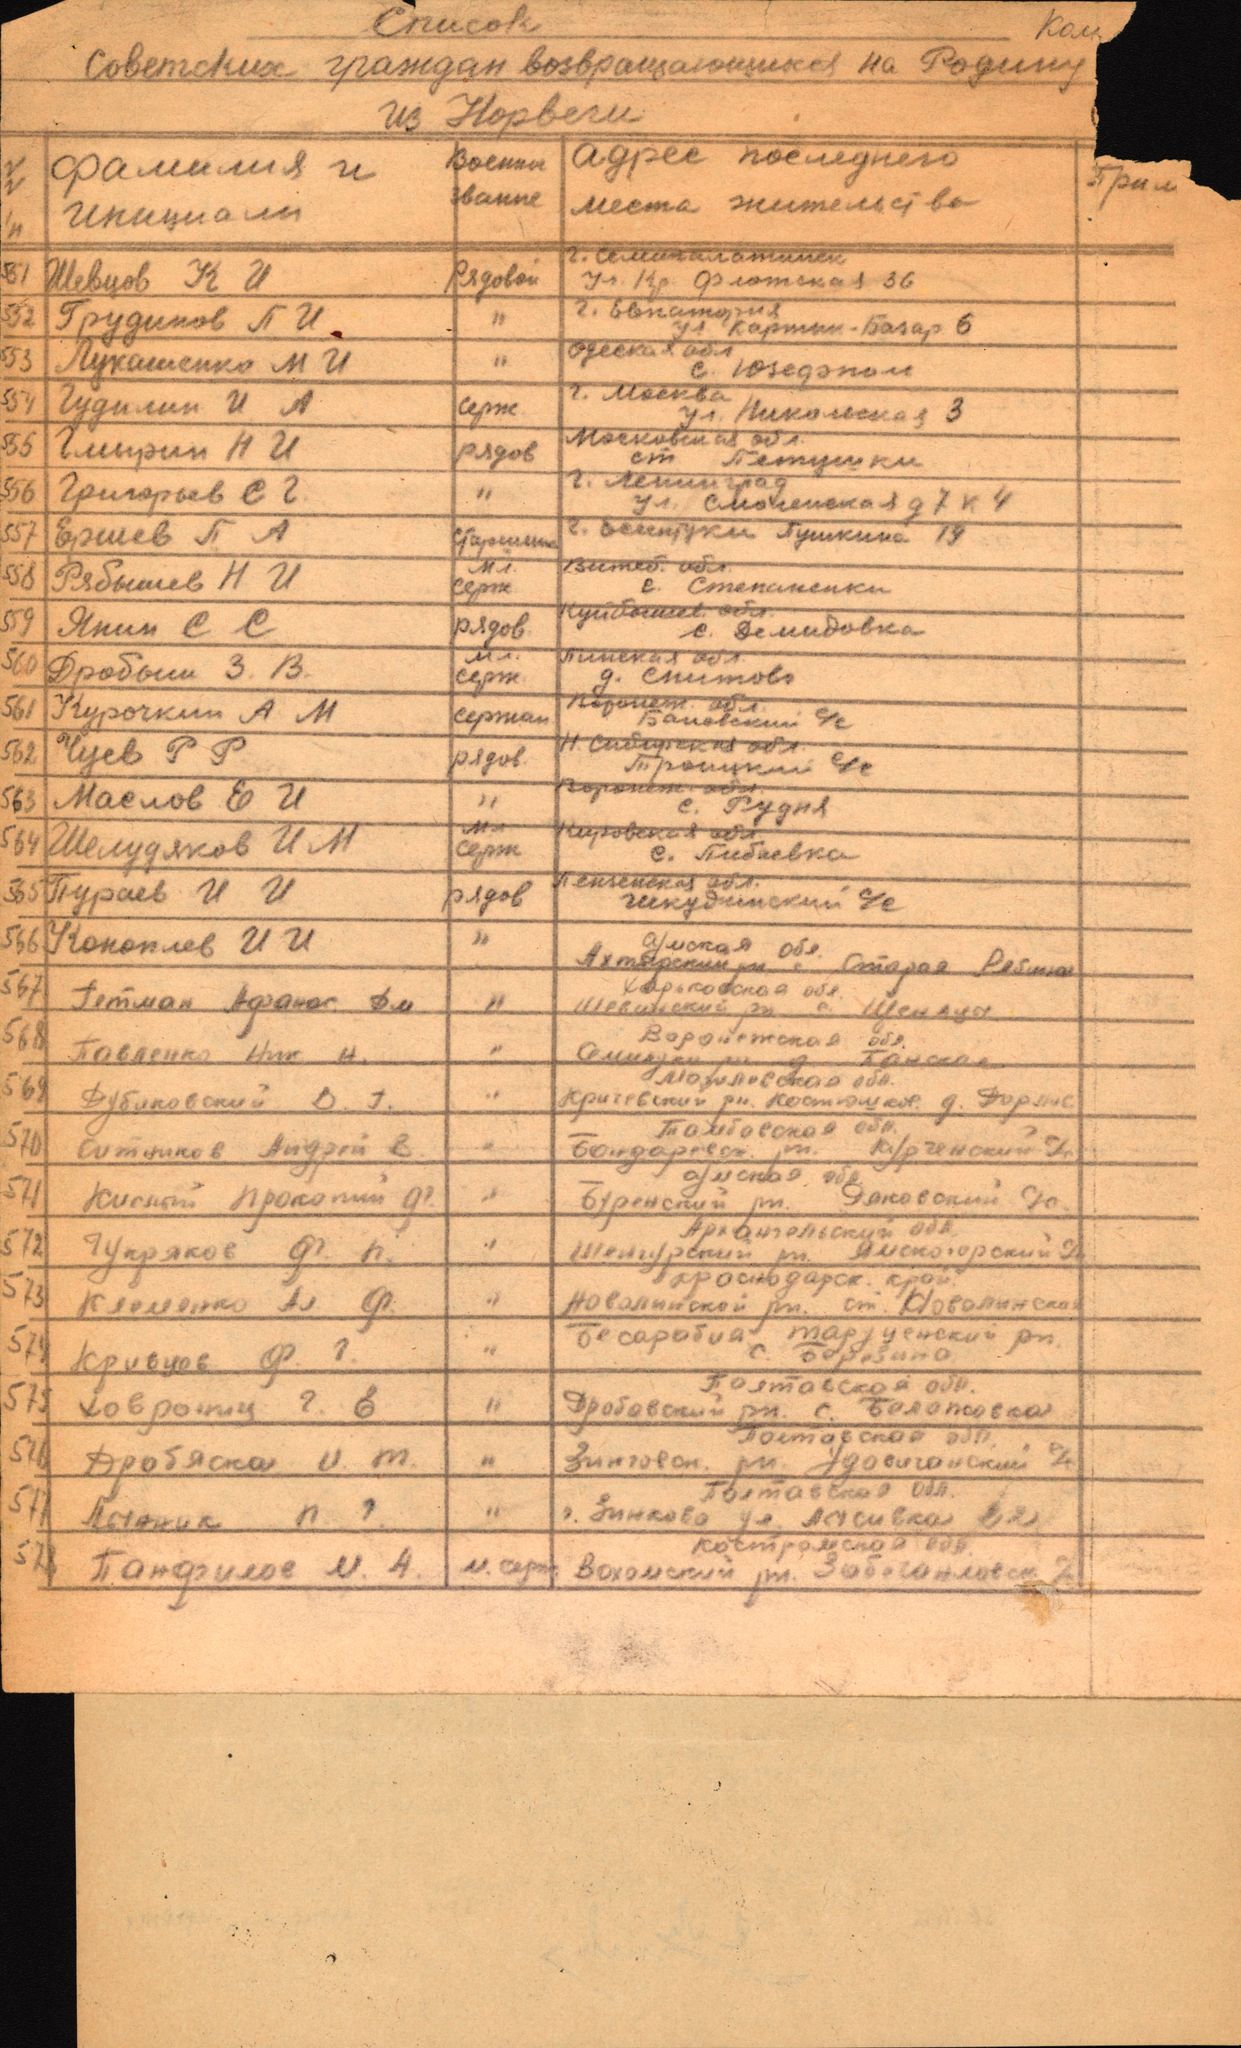 Список
Ком
Советских граждан возвращающихся на Родину
из Норвеги
№ п/п
Фамилия и инициали
Военны звание
Адрес последнего места жительства
Прим
551 Шевцов К И Рядовой г. Семипалатинск
ул. Кр. Флотская 36
552 Грудинов П И " г. Евпатория
ул Картын-Базар 6
553 Лукашенко М И " Одеская обл
с. Юзефпол
554 Гудилин И А серж. г. Москва
ул. Никольская 3
555 Гмырин Н И рядов Московская обл.
ст Петушки
556 Григорьев С Г. " г. Ленинград
ул. Смоленская д 7 к 4
557 Ершев П А старшина г. Есентуки Пушкина 19
558 Рябышев Н И мл. серж Витеб. обл.
с. Степаненки
559 Янин С С рядов. Куйбышев. обл.
с. Демидовка
560 Дробыш З. В. мл. серж. Пинская обл.
д. Снитово
561 Курочкин А М сержан Воронеж. обл.
с/с
562 Чуев Р Р рядов. Н. Сибирская обл.
Троицкий с/с
563 Маслов Е И " Воронеж. обл.
с. Рудня
564 Шелудяков И М мл серж Кировская обл.
с.
565 Пураев И И рядов Пензенская обл.
с/с
566 Коноплев И И " Сумская обл.
Ахтырский рн с Старая
567 Гетман Афанас. Дм " Харьковская обл.
рн с.
568 Павленко Ник Н. " Воронежская обл.
рн д.
569 Дубяковский В. Г. " Могилевская обл.
Кричевский рн. д.
570 Ситников Андрей В. " Тамбовская обл.
Бондаревск. рн. с/с
571 Кислый Прокопий Ф. " Сумская обл
Буренский рн. Дяковский с/с.
572 Чукряков Ф. П. " Архангельский обл.
Шенкурский рн. Ямскогорский с/с
573 Клеменко Ал Ф. " Краснодарск. край.
рн. ст.
574 Кривцов Ф. Г. " Бесарабия рн.
с. Березино
575 Ховраниц Г. Е " Полтавская обл.
Дробовский рн. с.
576 Дробяска И. Т. " Полтавская обл.
рн. с/с
577 П. Г. " Полтавская обл.
г. Зинково ул
578 Панфилов И. А. м. серж Костромская обл.
Вохомский рн. с/с